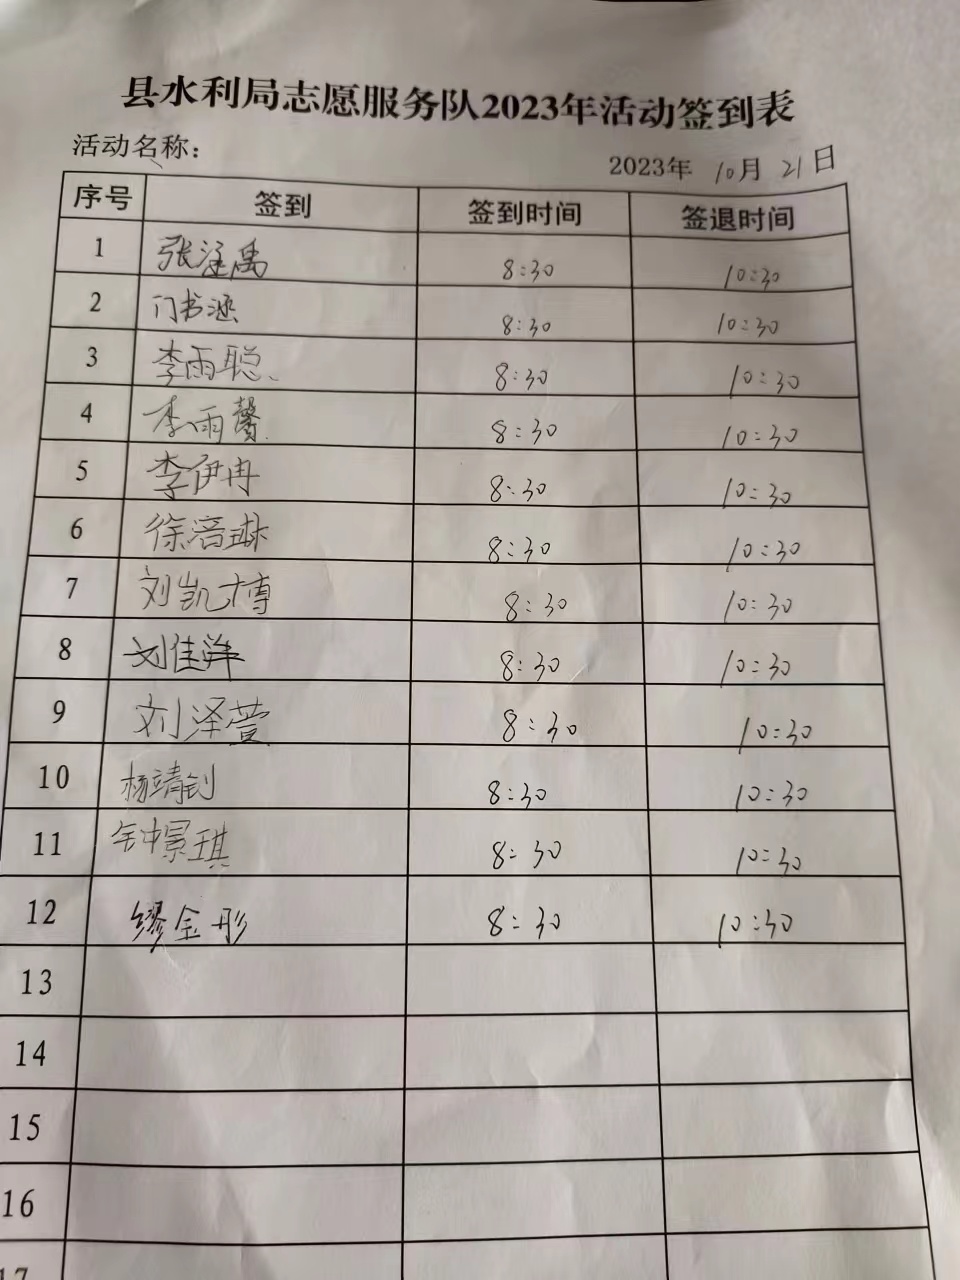 县水利局志愿服务队2023年活动签到表
活动名称：
2023年 10月 21日
序号 签到 签到时间 签退时间
1 张涵禹 8:30 10:30
2 门书涵 8:30 10:30
3 李雨聪、 8:30 10:30
4 李雨馨. 8:30 10:30
5 李伊冉 8:30 10:30
6 徐涪琳 8:30 10:30
7 刘凯博 8:30 10:30
8 刘佳洋 8:30 10:30
9 刘泽萱 8:30 10:30
10 杨靖钊 8:30 10:30
11 钟景琪 8:30 10:30
12 缪金彤 8:30 10:30
13
14
15
16
17